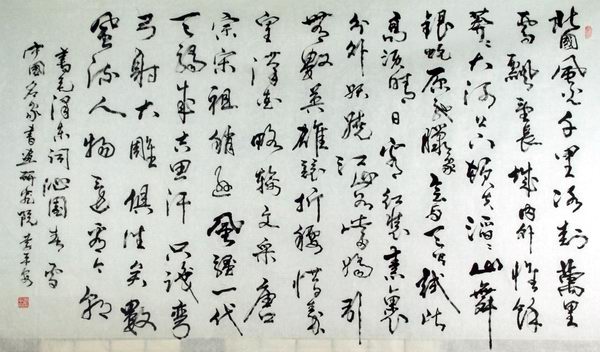 北國風光千里冰封萬里
雪飄望長城內外惟餘
莽々大河上下頓失滔々山舞
銀蛇原馳臘象欲与天公試比
高須晴日看紅裝素裹
分外妖嬈江山如此多嬌引
無數英雄競折腰惜秦
皇漢武略輸文采唐
宗宋祖稍遜風騷一代
天驕成吉思汗只識彎
弓射大雕俱往矣數
風流人物還看今朝
書毛澤東詞沁園春雪
中國名家書畫研究院